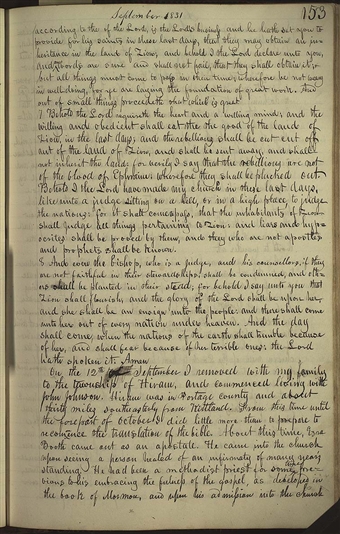 September 1831
153
according to the of the Lord, is the Lords business and he hath set you to
provide for his saints in these last days, that they may obtain an in-
heritance in the land of Zion, and behold I the Lord declare unto you
and my words are sure and shall not fail, that they shall obtain it:
but all things must come to pass in their time; wherefore be not weary
in well doing, for ye are laying the foundation of great work. And
out of small things proceedeth that which is great
7 Behold the Lord requireth the heart and a willing mind; and the
willing and obedient shall eat the good of the land of
Zion, in the last days; and the rebellious shall be cut out of
out of the land of Zion, and shall be sent away and shall
not inherit the land: for verily I say that the rebellious are not
of the blood of Ephraim wherefore they shall be plucked out
Behold I the Lord have made my church in these last days,
like unto a judge sitting on a hill, or in a high place to judge
the nations: for it shall come to pass, that the inhabitants of Zion
shall judge all things pertaining to Zion and liars and hyp-
ocrites shall be proved by them, and they who are not apostles
and prophets shall be known.
8 And even the bishop, who is a judge, and his counsellors, if they
are not faithful in their stewardships, shall be condemned, and oth-
ers shall be planted in their stead; for behold I say unto you that
Zion shall flourish, and the glory of the Lord shall be upon her,
and she shall be an ensign unto the people: and there shall come
unto her out of every nation under heaven. And the day
shall come, when the nations of the earth shall tremble because
of her, and shall fear because of her terrible ones: the Lord
hath spoken it: Amen
On the 12th of September I removed with my family
to the township of Hiram, and commenced living with
John Johnson. Hiram was in Portage county and about
thirty miles southeasterly from Kirtland. From this time until
the forepart of October I did little more than prepare to
recommence the translation of the bible. About this time, Ezra
Booth came out as an apostate. He came into the church
upon seeing a person healed of an infirmity of many years
standing. He had been a methodist priest for some time pre-
vious to his embracing the fulness of the gospel, as developed in
the book of Mormon, and upon his admission into the church